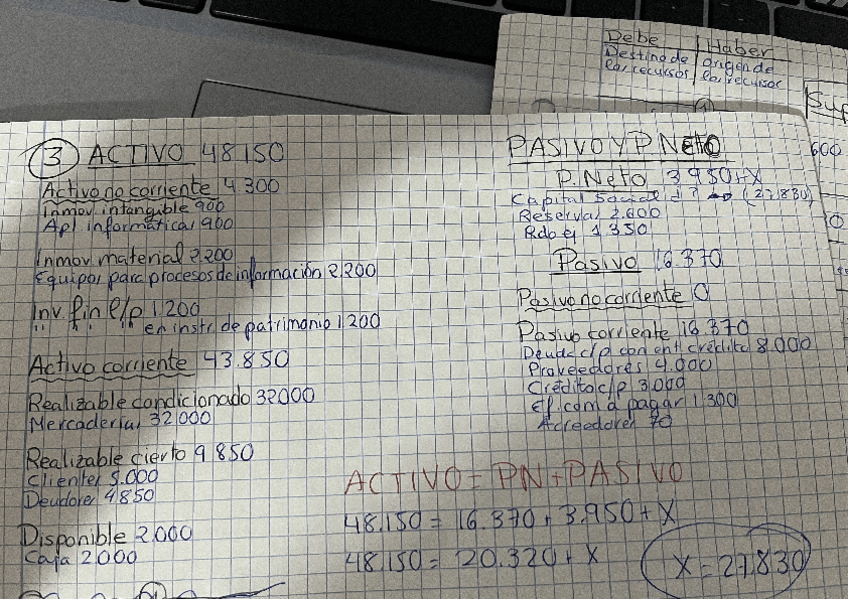 Debe Haber
Destino de origen de
los recursos los recursos
Sup
600
3 ACTIVO 48150
Activo no corriente 4300
Inmov intangible 900
Apl informáticas 900
Inmov material 2.200
Equipos para procesos de información 2,200
Inv fin l/p 1.200
en instr. de patrimonio 1.200
Activo corriente 43.850
Realizable condicionado 32000
Mercaderías 32000
Realizable cierto 9850
Clientes 5.000
Deudores 4850
Disponible 2.000
Caja 2000
PASIVO Y P NETO
P. Neto 3950+X
Capital Social ¿? (27.830)
Reservas 2.600
Rdo ej 1.350
Pasivo 16.370
Pasivo no corriente 0
Pasivo corriente 16.370
Deudas c/p con ent. crédito 8.000
Proveedores 4.000
Crédito c/p 3.000
Ef. com a pagar 1.300
Acreedores 70
ACTIVO = PN + PASIVO
48.150 = 16.370 + 3.950 + X
48.150 = 20.320 + X
X = 27.830